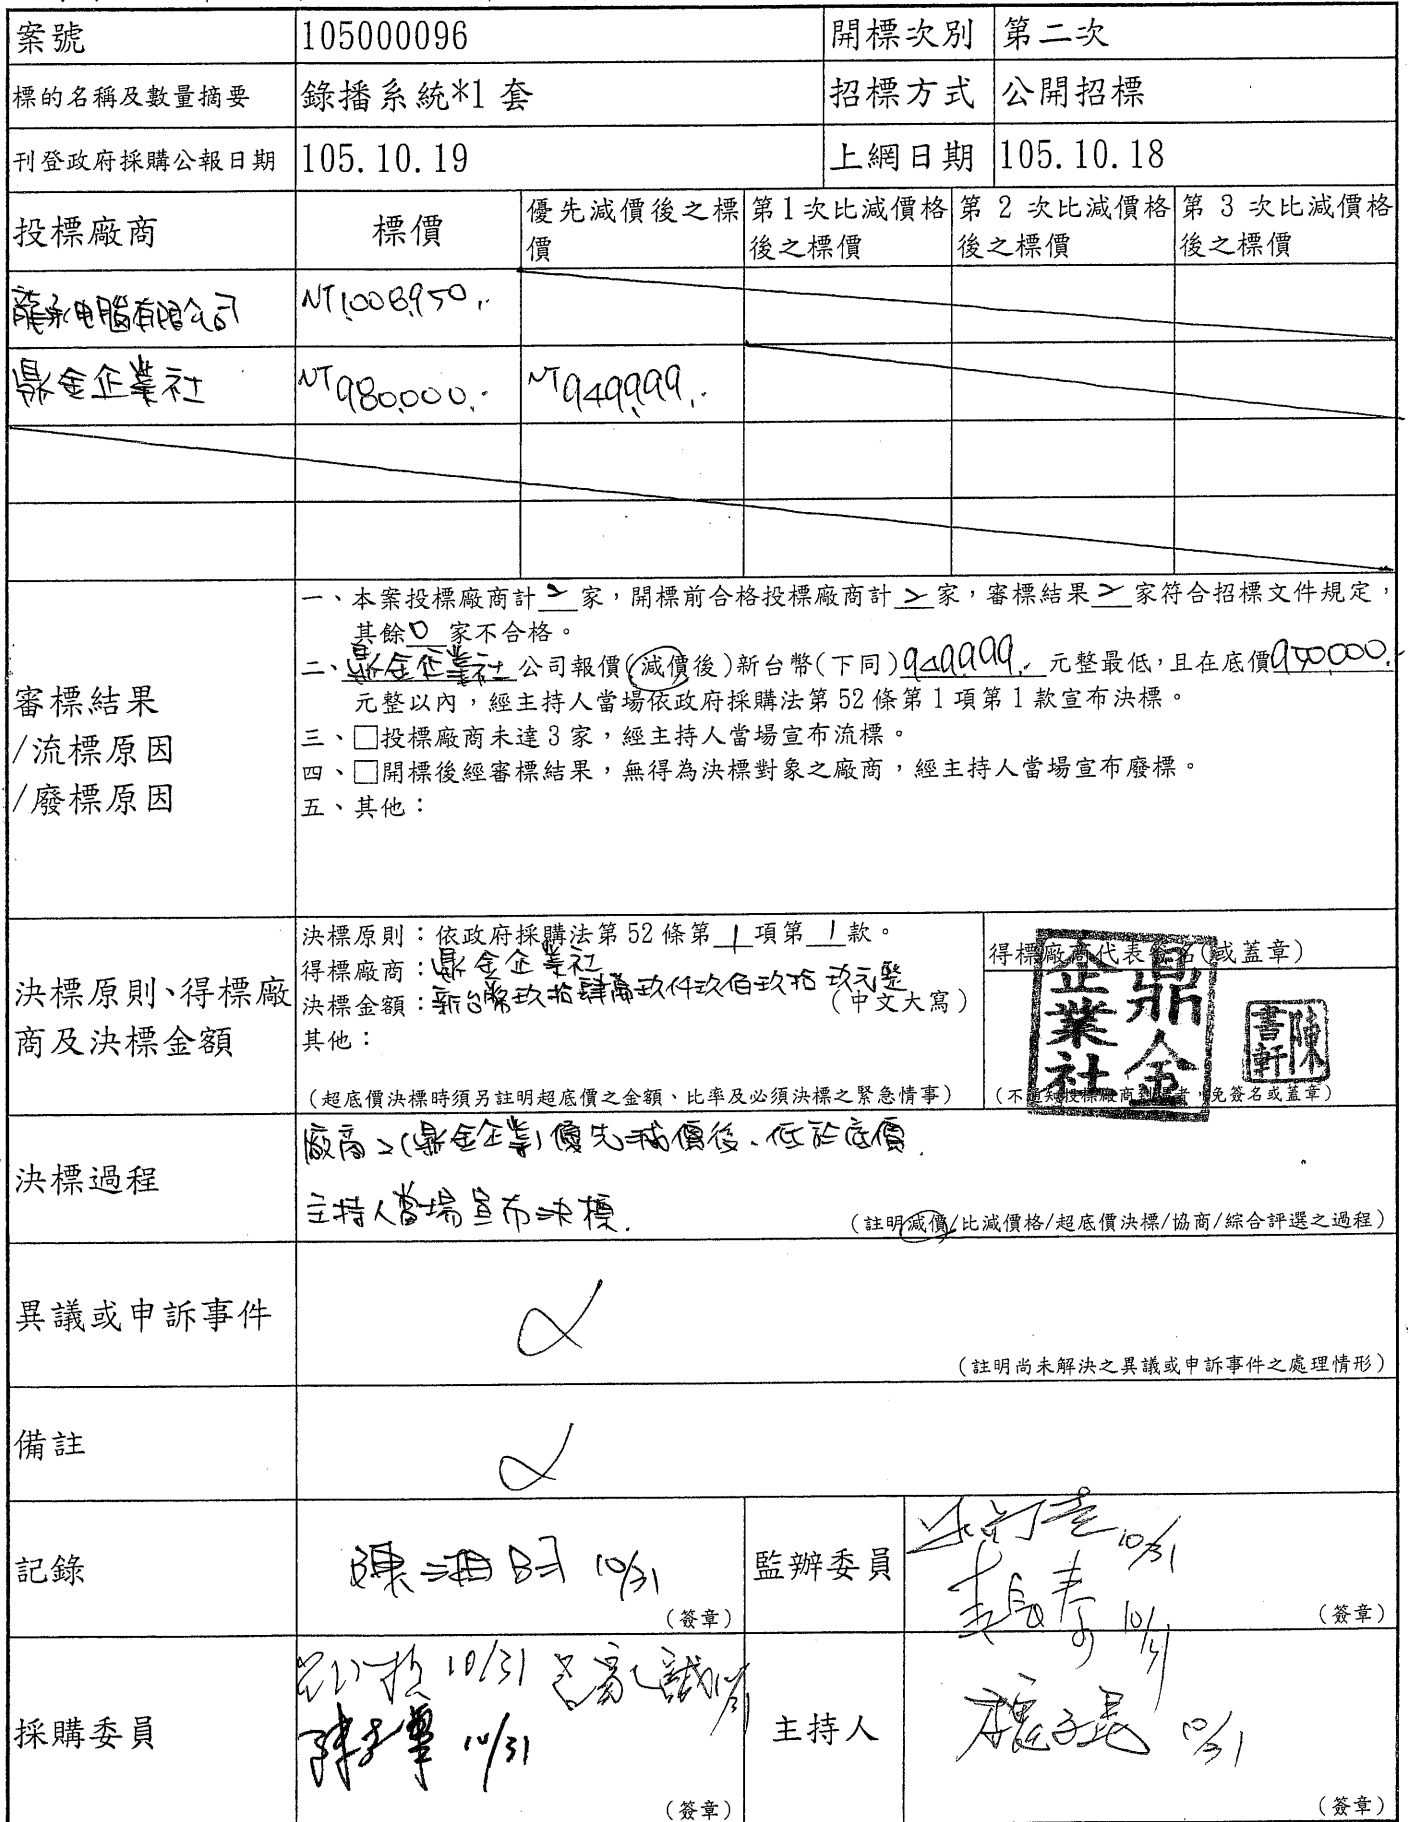 案號 105000096 開標次別 第二次
標的名稱及數量摘要 錄播系統*1 套 招標方式 公開招標
刊登政府採購公報日期 105.10.19 上網日期 105.10.18
投標廠商 標價 優先減價後之標價 第1次比減價格後之標價 第 2 次比減價格後之標價 第 3 次比減價格後之標價
電腦有限公司 NT1,008,950.-
鼎金企業社 NT980,000.- NT949,999.-
審標結果
/流標原因
/廢標原因
一、本案投標廠商計 2 家，開標前合格投標廠商計 2 家，審標結果 2 家符合招標文件規定，
其餘 0 家不合格。
二、鼎金企業社 公司報價(減價後)新台幣(下同) 949,999.- 元整最低，且在底價 950,000.
元整以內，經主持人當場依政府採購法第 52 條第 1 項第 1 款宣布決標。
三、□投標廠商未達 3 家，經主持人當場宣布流標。
四、□開標後經審標結果，無得為決標對象之廠商，經主持人當場宣布廢標。
五、其他：
決標原則、得標廠
商及決標金額
決標原則：依政府採購法第 52 條第 1 項第 1 款。
得標廠商：鼎金企業社
決標金額：新台幣玖拾肆萬玖仟玖佰玖拾玖元整
(中文大寫)
其他：
(超底價決標時須另註明超底價之金額、比率及必須決標之緊急情事)
得標廠商代表簽名(或蓋章)
鼎金
企業社
陳
書軒
(不通知投標廠商到場者，免簽名或蓋章)
決標過程
廠商2(鼎金企業)優先減價後、低於底價.
主持人當場宣布決標.
(註明減價/比減價格/超底價決標/協商/綜合評選之過程)
異議或申訴事件
(註明尚未解決之異議或申訴事件之處理情形)
備註
記錄 10/31 (簽章)
監辦委員 10/31 10/31 (簽章)
採購委員 10/31 10/31 10/31 (簽章)
主持人 10/31 (簽章)